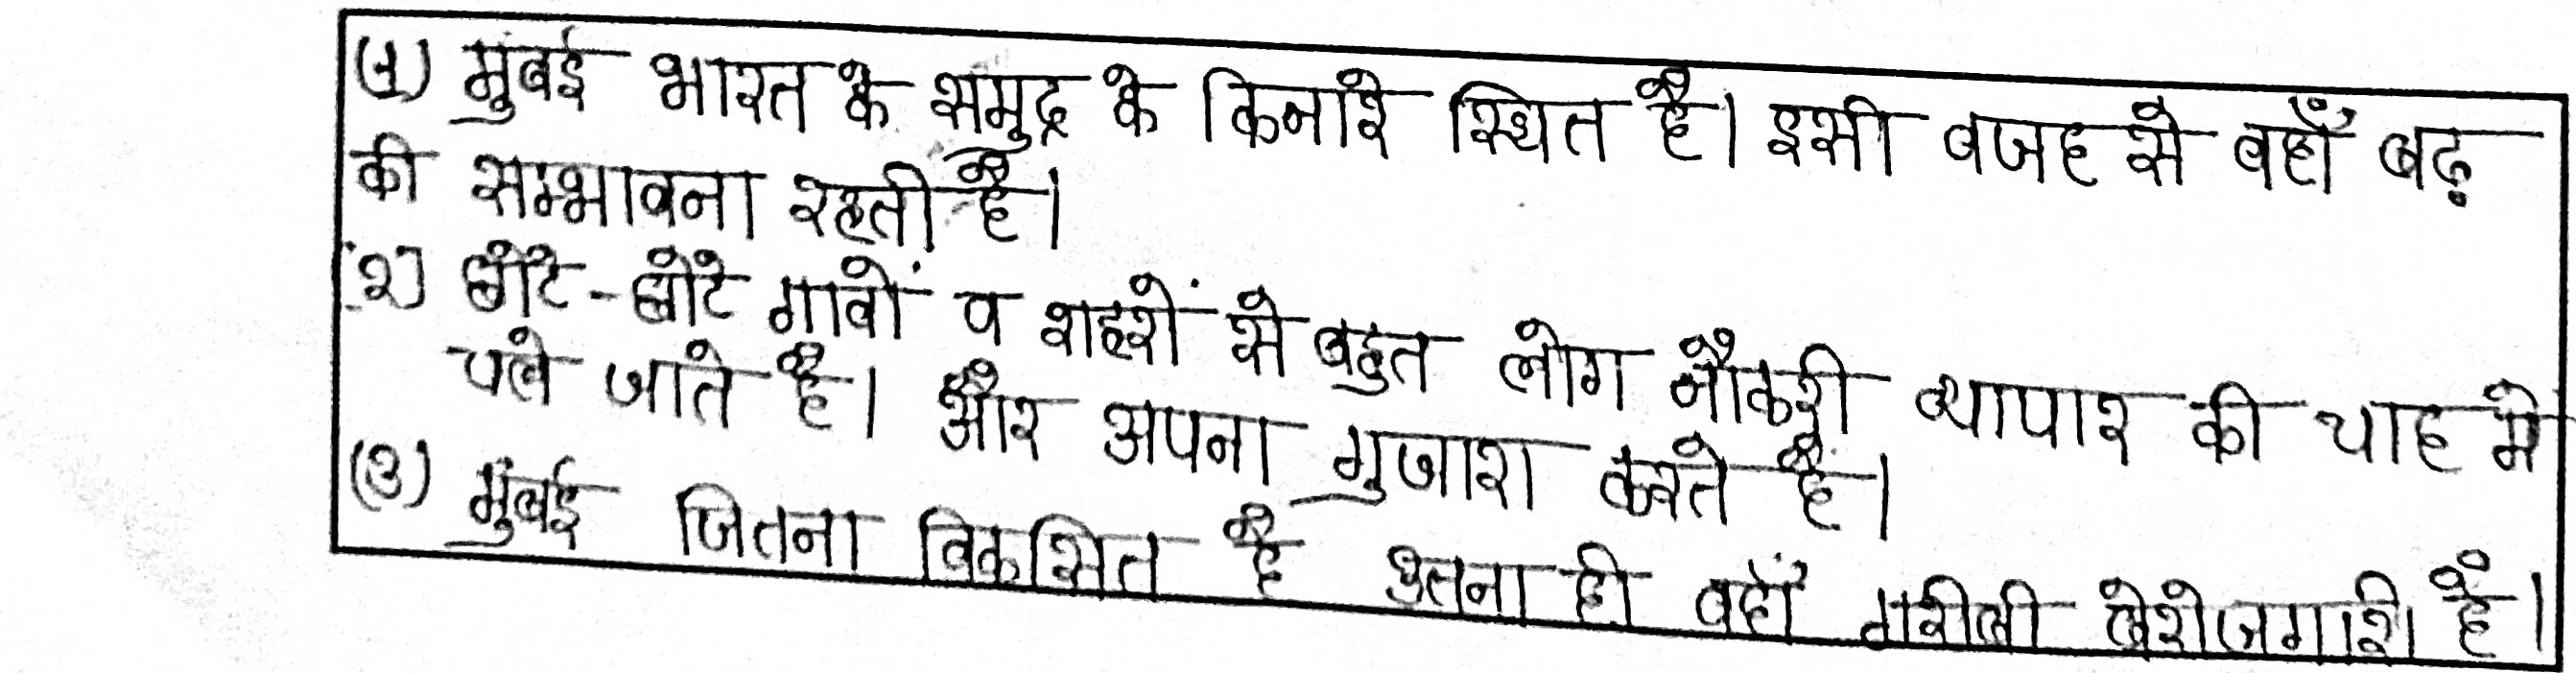 (1) मुंबई भारत के समुद्र के किनारे स्थित है। इसी वजह से वहाँ बढ़
की सम्भावना रहती है।
(2) छोटे-छोटे गावों व शहरों से बहुत लोग नौकरी व्यापार की चाह में
चले जाते है। और अपना गुजारा करते हैं।
(3) मुंबई जितना विकसित है उतना ही वहाँ गरीबी बेरोजगारी है।